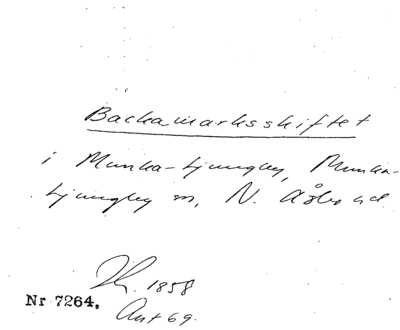 Backamarksskiftet
i Munka-Ljungby, Munka-
Ljungby sn, N. Åsbo hd
Kr. 1858
Nr 7264.
Ant 69.